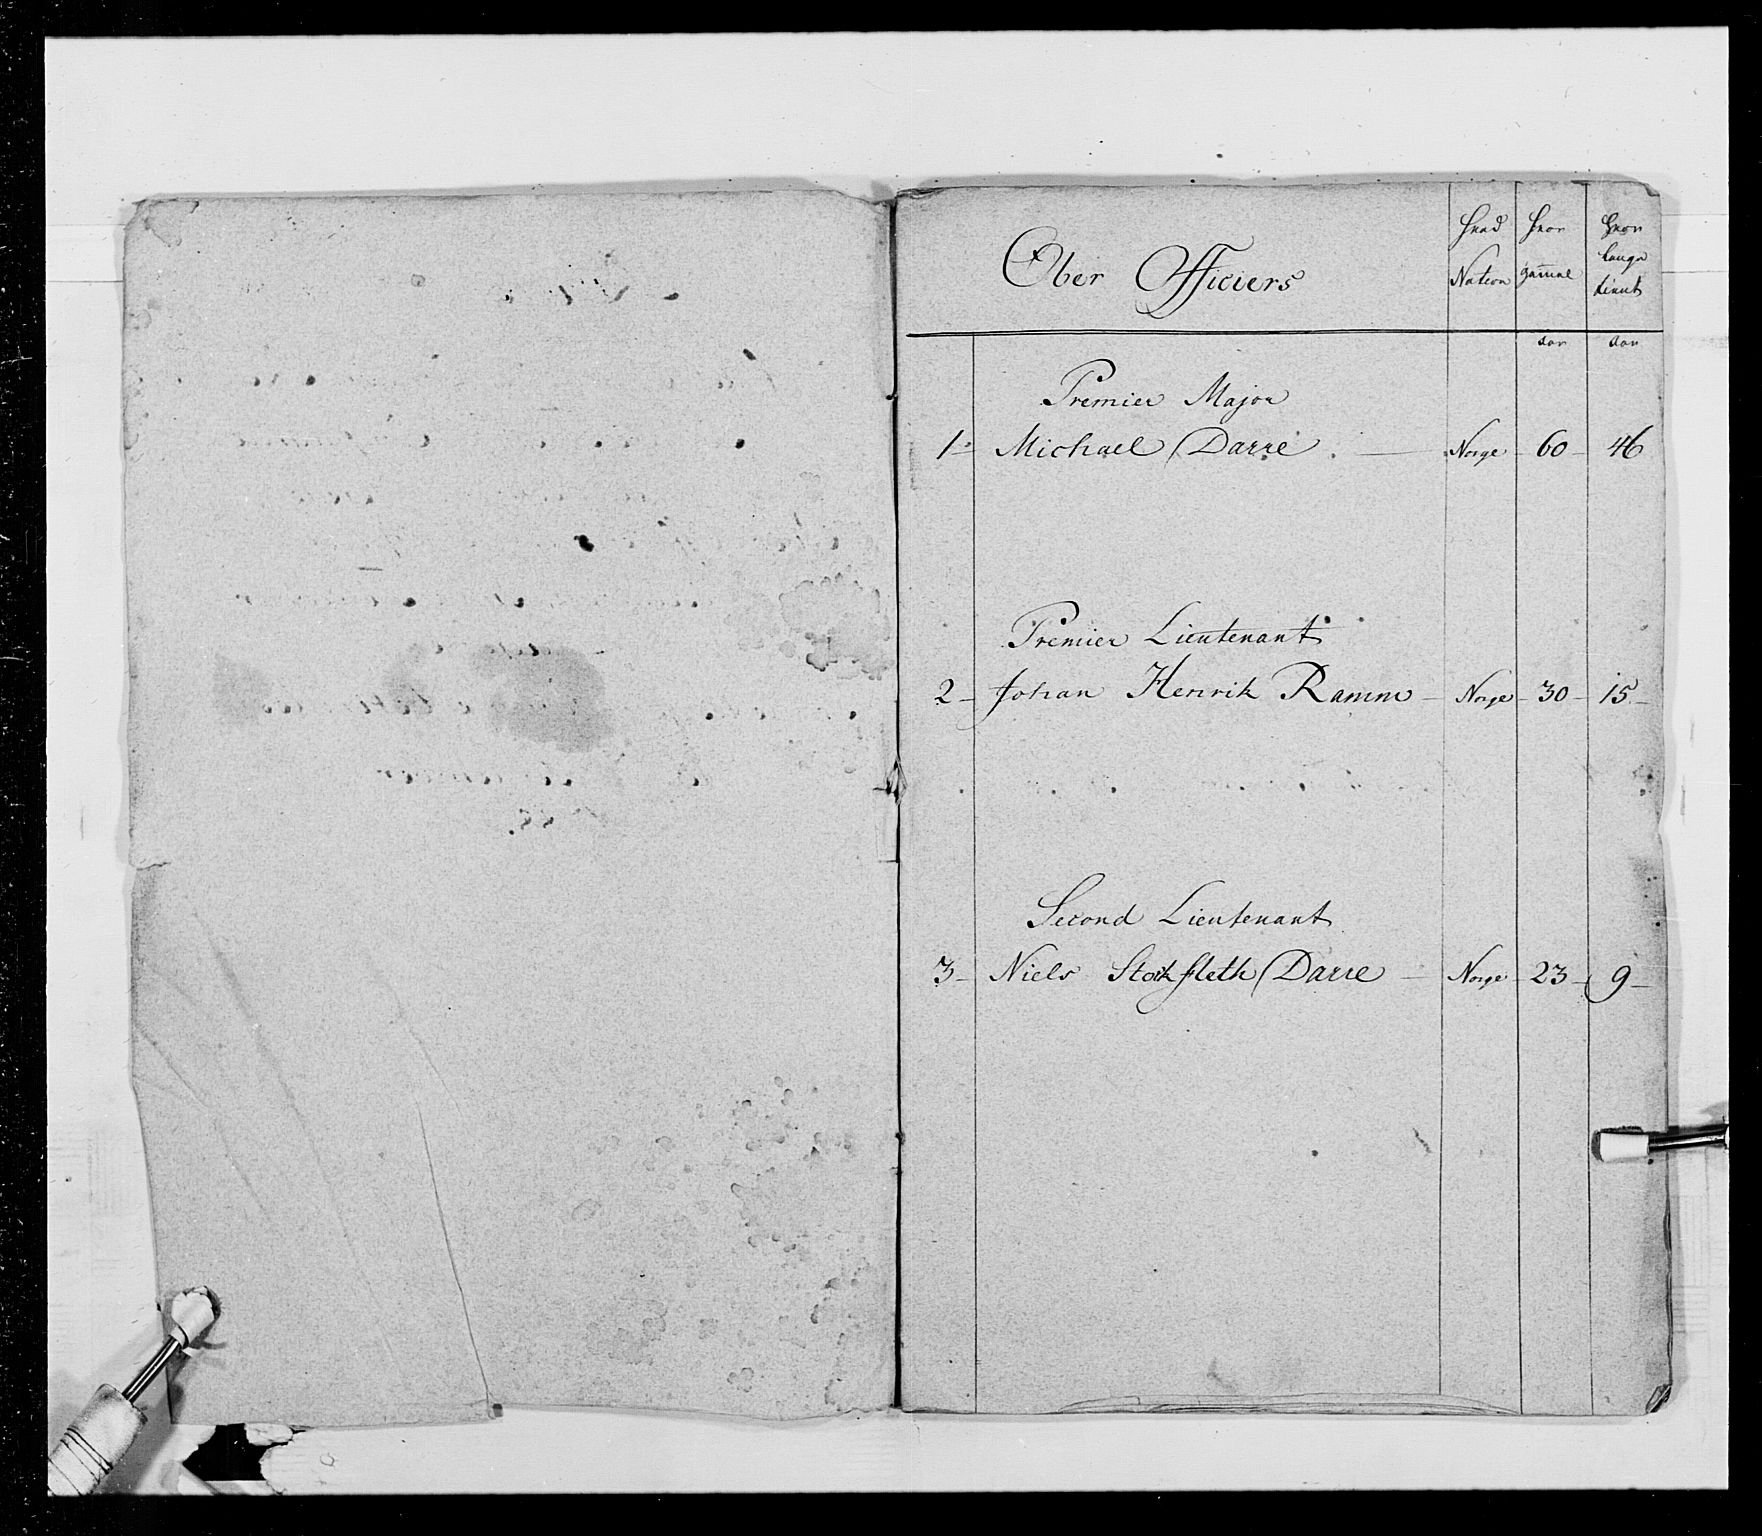 Ober Officiers
Hvad Nation
Hvor gam̄al
Hvor længe tient
aar
aar
Premier Major
1- Michael Darre - Norge - 60 - 46
Premier Lieutenant
2- Johan Henrik Ramm - Norge - 30 - 15 -
Second Lieutenant
3- Niels Stokfleth Darre - Norge - 23 - 9 -